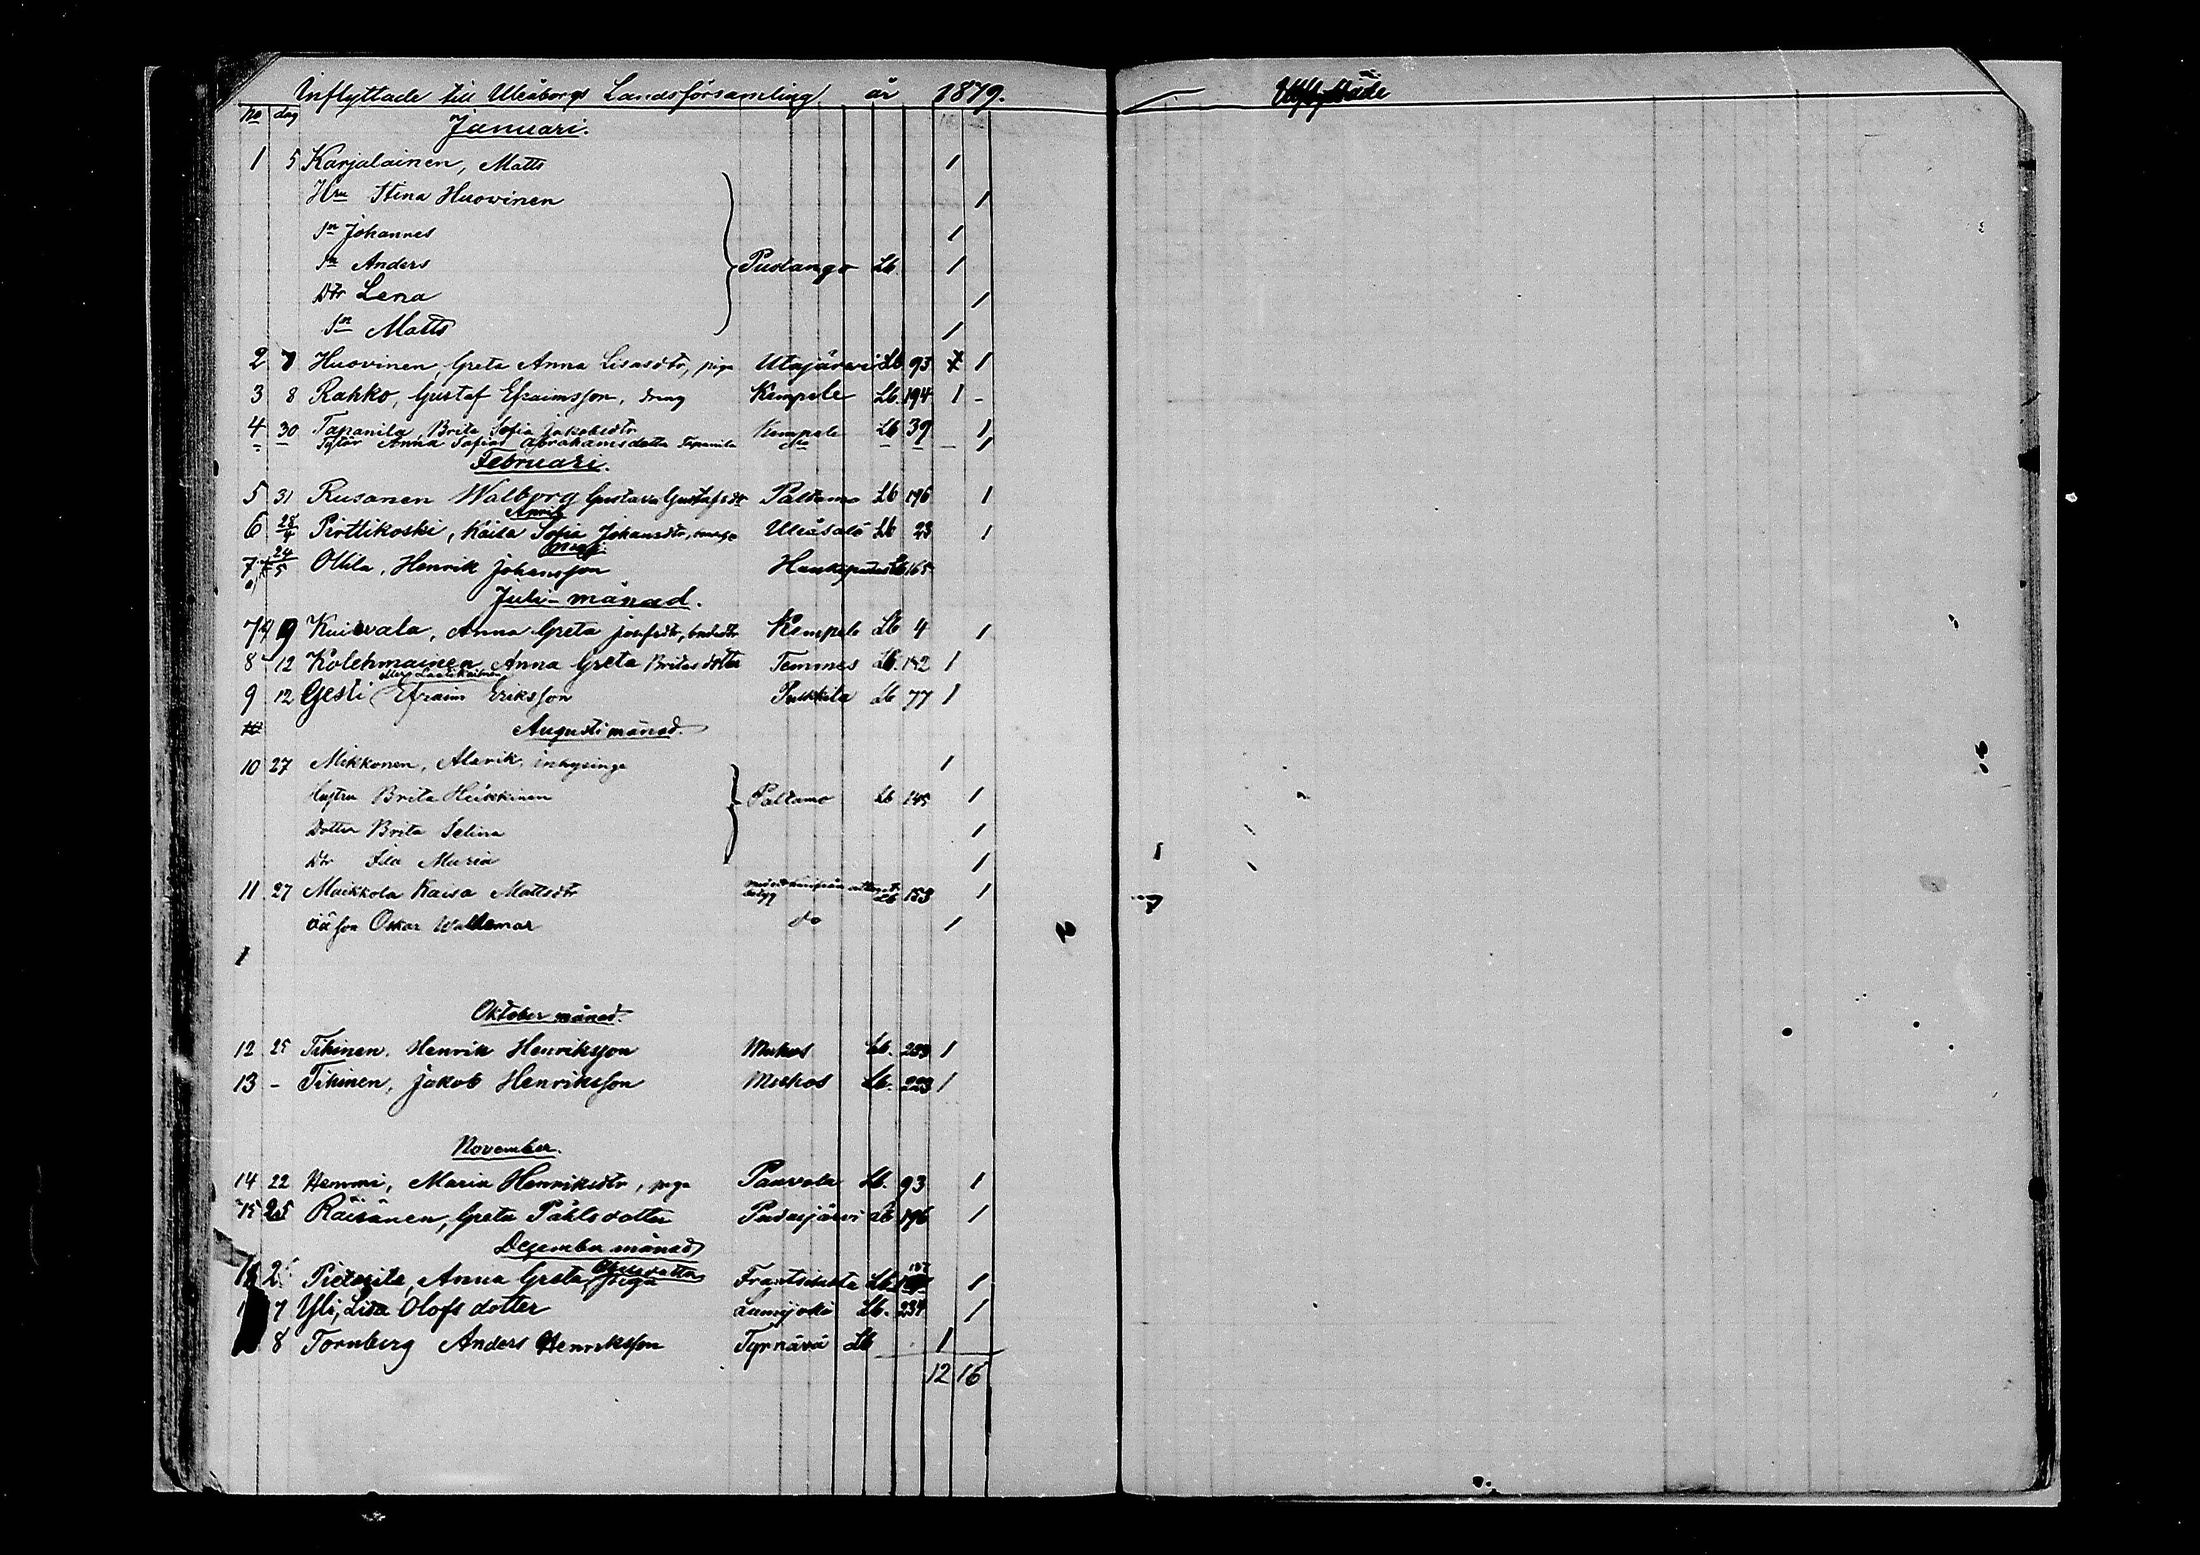 Inflyttade till Uleåborgs Landsförsamling år 1879.
No dag
Januari.
1 5 Karjalainen, Matts 1
Hru Stina Huovinen 1
Sn Johannes 1
Sn Anders Pudango Lb. 1
Dtr Lena 1
Sn Matts 1
2 7 Huovinen, Greta Anna Lisasdtr, piga Utajärvi Lb 93 1
3 8 Rahko, Gustaf Efraimsson, dräng Kempele Lb. 194 1 -
4 30 Tapanila Brita Sofia Jakobsdtr Kempele Lb 39 1
- - Anna Sofia Abrahamsdotter Tapanila do - - - 1
Februari.
5 31 Rusanen Walborg Gustava Gustafsdtr Paldamo Lb 196 1
April
6 28/4 Pirttikoski, Kaisa Sofia Johansdtr, Uleåsalo Lb 23 1
Maj
7 24/5 Ollila, Henrik Johansson Haukipudas Lb 165
Juli-månad.
7 9 Kuivala, Anna Greta Josefsdtr, Kempele Lb 4 1
8 12 Kolehmainen Anna Greta Britas dotter Temmes Lb. 142 1
9 12 Gesti Efraim Eriksson Pulkkila Lb 77 1
10 Augusti månad.
10 27 Mikkonen, Alarik, inhysing 1
Hustru Brita Heikkinen Paldamo Lb 145 1
Dotter Brita Selina 1
Dtr Ida Maria 1
11 27 Maikkola Kaisa Mattsdtr Lb 153 1
oä son Oskar Waldemar do 1
1
Oktober månad.
12 25 Tihinen, Henrik Henriksson Muhos Lb. 223 1
13 - Tihinen, Jakob Henriksson Muhos Lb. 223 1
November.
14 22 Hemmi, Maria Henriksdtr, piga Paavola Lb. 93 1
15 25 Räisänen, Greta Påhlsdotter Pudasjärvi Lb 196 1
Dezember månad
Pietarila, Anna Greta, piga Frantsila Lb 1
7 Yli, Lisa Olofs dotter Lumijoki Lb. 234 1
8 Tornberg Anders Henriksson Tyrnävä Lb 1
12 16
Utflyttade